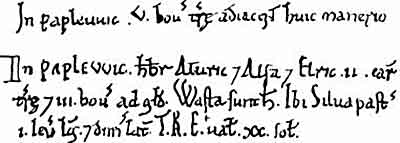 In paplewic . v. bou᷒ t᷑re adiacet huic manerio
In PAPLEWIC . hƀr Aluric ⁊ Alsa ⁊ Elric . ii . car᷒
t᷑re ⁊ iii . bou᷒ ad glđ . Wasta sunt . Ibi Silua past᷒
i . leu᷒ lg̃ . ⁊ dim᷒ lat̃ . T . R . E . ual̃ . xx . sol̃ .